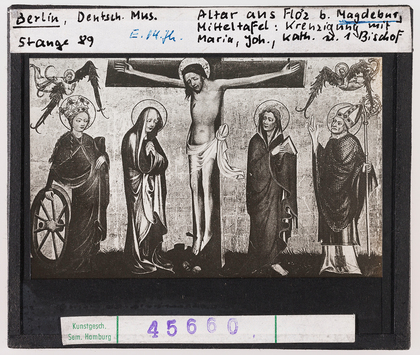 Berlin, Deutsch. Mus.
Stange 89
E. 14. Jh.
Altar aus Floz b. Magdeburg,
Mitteltafel: Kreuzigung mit
Maria, Joh., Kath. u. 1 Bischof
Kunstgesch.
Sem. Hamburg
45660